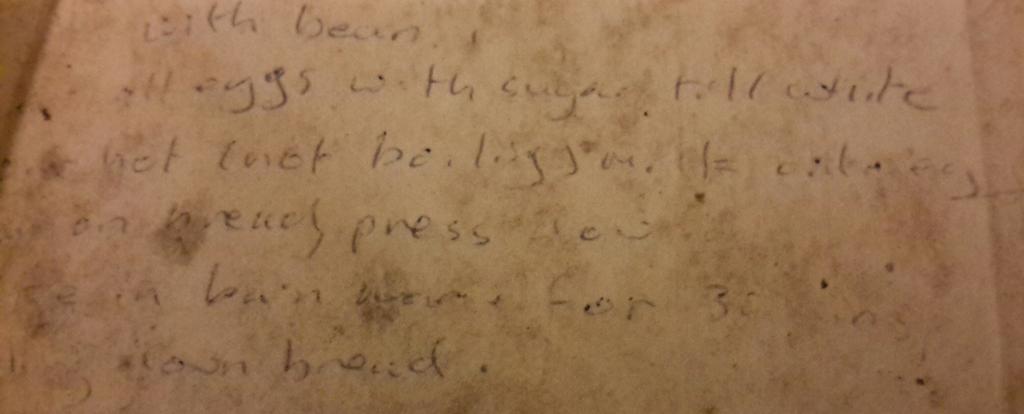 with bean
eggs with sugar till white
hot (not boiling) milk onto egg
on bread press down
in bain marie for 30 mins
down bread.